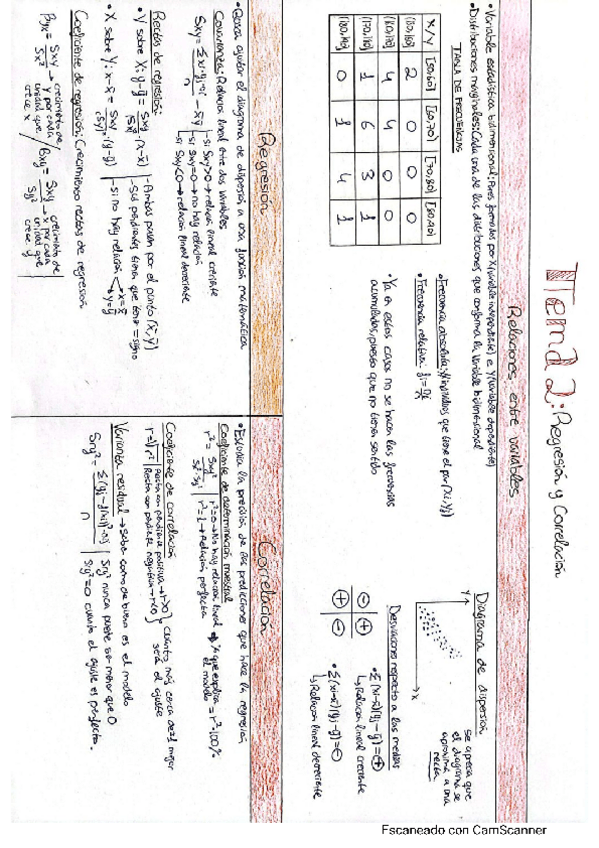 Tema 2: Regresión y Correlación
Relaciones entre variables
• Variable estadística bidimensional: Pares formados por X(variable independiente) e Y(variable dependiente)
• Distribuciones marginales: Cada una de las distribuciones que conforma la variable bidimensional
TABLA DE FRECUENCIAS
X/Y [50,60) [60,70) [70,80) [80,90)
2 0 0 0
4 4 0 0
1 6 3 1
0 1 4 1
• Frecuencia absoluta: nº individuos que tiene el par (Xi, Yj)
• Frecuencia relativa:
• Ya en estos casos no se hacen las frecuencias
acumuladas, puesto que no tiene sentido
Diagrama de dispersión
Y
X
se aprecia que
el diagrama se
aproxima a una
recta
Desviaciones respecto a las medias
⊖ ⊕
⊕ ⊖
• Σ(xi-x̄)(yj-ȳ)=⊕
↳Relación lineal creciente
• Σ(xi-x̄)(yj-ȳ)=⊖
↳Relación lineal decreciente
Regresión
• Busca ajustar el diagrama de dispersión a una función matemática
Covarianza: Relación lineal entre dos variables
-si Sxy>0→relación lineal creciente
-si Sxy=0→no hay relación
-si Sxy<0→relación lineal decreciente
Rectas de regresión:
• Y sobre X: y-ȳ = Sxy/Sx² · (x-x̄)
• X sobre Y: x-x̄ = Sxy/Sy² · (y-ȳ)
-Ambas pasan por el punto (x̄,ȳ)
-Sus pendientes tienen que tener = signo
-si no hay relación x=x̄ y=ȳ
Coeficiente de regresión: Crecimiento rectas de regresión
Byx = Sxy/Sx² → crecimiento de Y por cada unidad que crece x
Bxy = Sxy/Sy² → crecimiento de x por cada unidad que crece y
Correlación
• Estudia la precisión de las predicciones que hace la regresión
Coeficiente de determinación muestral
r² = Sxy²/Sx²·Sy²
r²=0→No hay relación lineal
r²=1→Relación perfecta
% que explica el modelo = r²·100%
Coeficiente de correlación
r=√r²
Recta con pendiente positiva→r>0
Recta con pendiente negativa→r<0
cuanto más cerca de ±1 mejor
será el ajuste
Varianza residual → saber como de bueno es el modelo
Sry² nunca puede ser menor que 0
Sry²=0 cuando el ajuste es perfecto
Escaneado con CamScanner